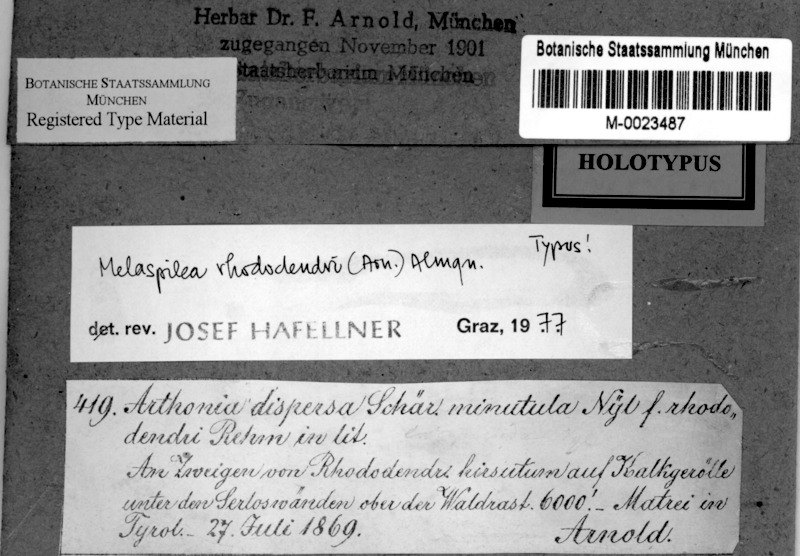 Herbar Dr. F. Arnold, München
zugegangen November 1901
Staatsherbarium München
Botanische Staatssammlung München
M-0023487
BOTANISCHE STAATSSAMMLUNG
MÜNCHEN
Registered Type Material
HOLOTYPUS
Melaspilea rhododendri (Arn.) Almqu. Typus!
det. rev. JOSEF HAFELLNER Graz, 1977
419. Arthonia dispersa Schär. minutula Nyl f. rhodo„
dendri Rehm in lit.
An Zweigen von Rhododendr. hirsutum auf Kalkgerölle
unter den Serloswänden ober der Waldrast. 6000'. – Matrei in
Tyrol. – 27. Juli 1869. Arnold.